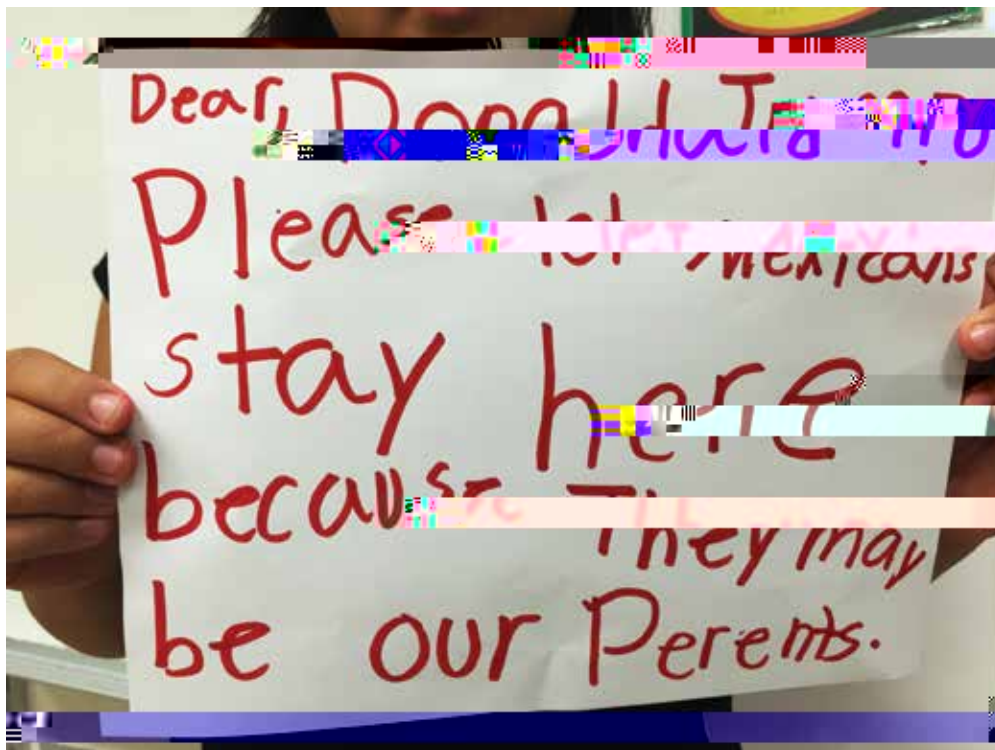 Dear, Donald Trump
Please let mexicans
stay here
because They may
be our Perents.